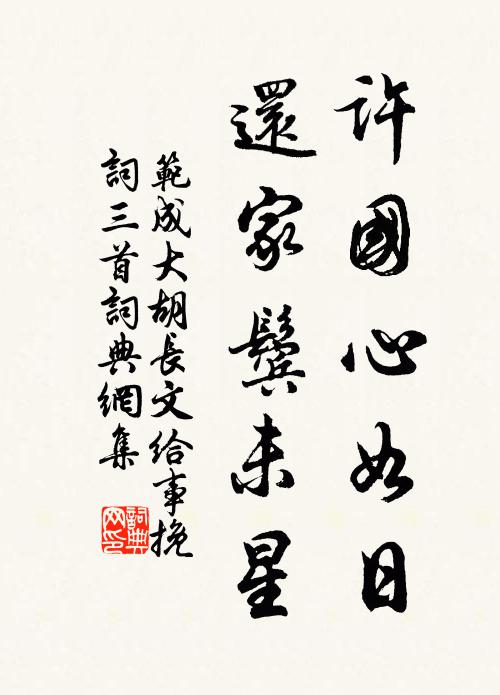 許國心如日
還家鬢未星
範成大胡長文給事挽
詞三首詞典網集
詞典网印